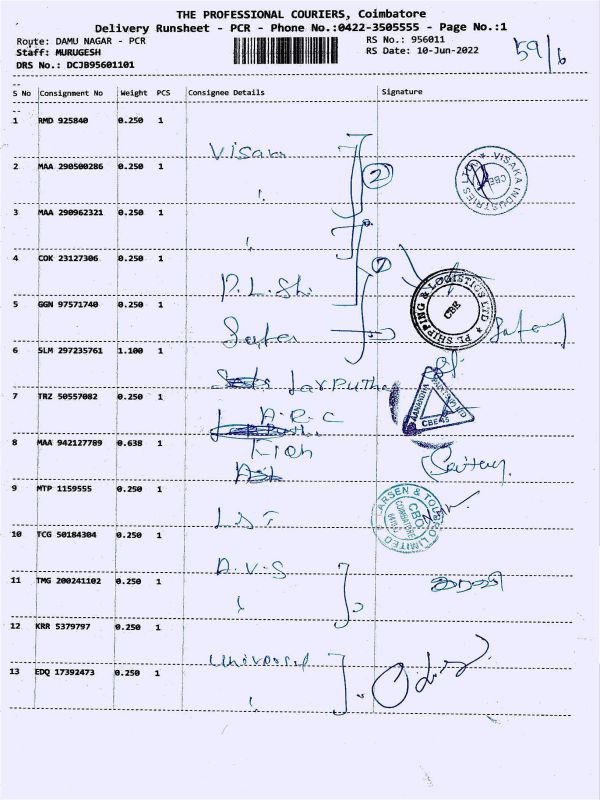 THE PROFESSIONAL COURIERS, Coimbatore
Delivery Runsheet - PCR - Phone No.:0422-3505555 - Page No.:1
Route: DAMU NAGAR - PCR RS No.: 956011
Staff: MURUGESH RS Date: 10-Jun-2022
DRS No.: DCJB95601101
59/6
S No Consignment No Weight PCS Consignee Details Signature
1 RMD 925840 0.250 1
Visaka
2 MAA 290500286 0.250 1
2
VISAKA INDUSTRIES LTD. CBE
3 MAA 290962321 0.250 1
4 COK 23127306 0.250 1
P.L.Sh
PL SHIPPING & LOGISTICS LTD CBE
5 GGN 97571740 0.250 1
6 SLM 297235761 1.100 1
7 TRZ 50557082 0.250 1
A.R.C
CBE-45
8 MAA 942127789 0.638 1
9 MTP 1159555 0.250 1
L&T
LARSEN & TOUBRO LIMITED COIMBATORE
10 TCG 50184304 0.250 1
A.V.S
11 TMG 200241102 0.250 1
12 KRR 5379797 0.250 1
Universal
13 EDQ 17392473 0.250 1